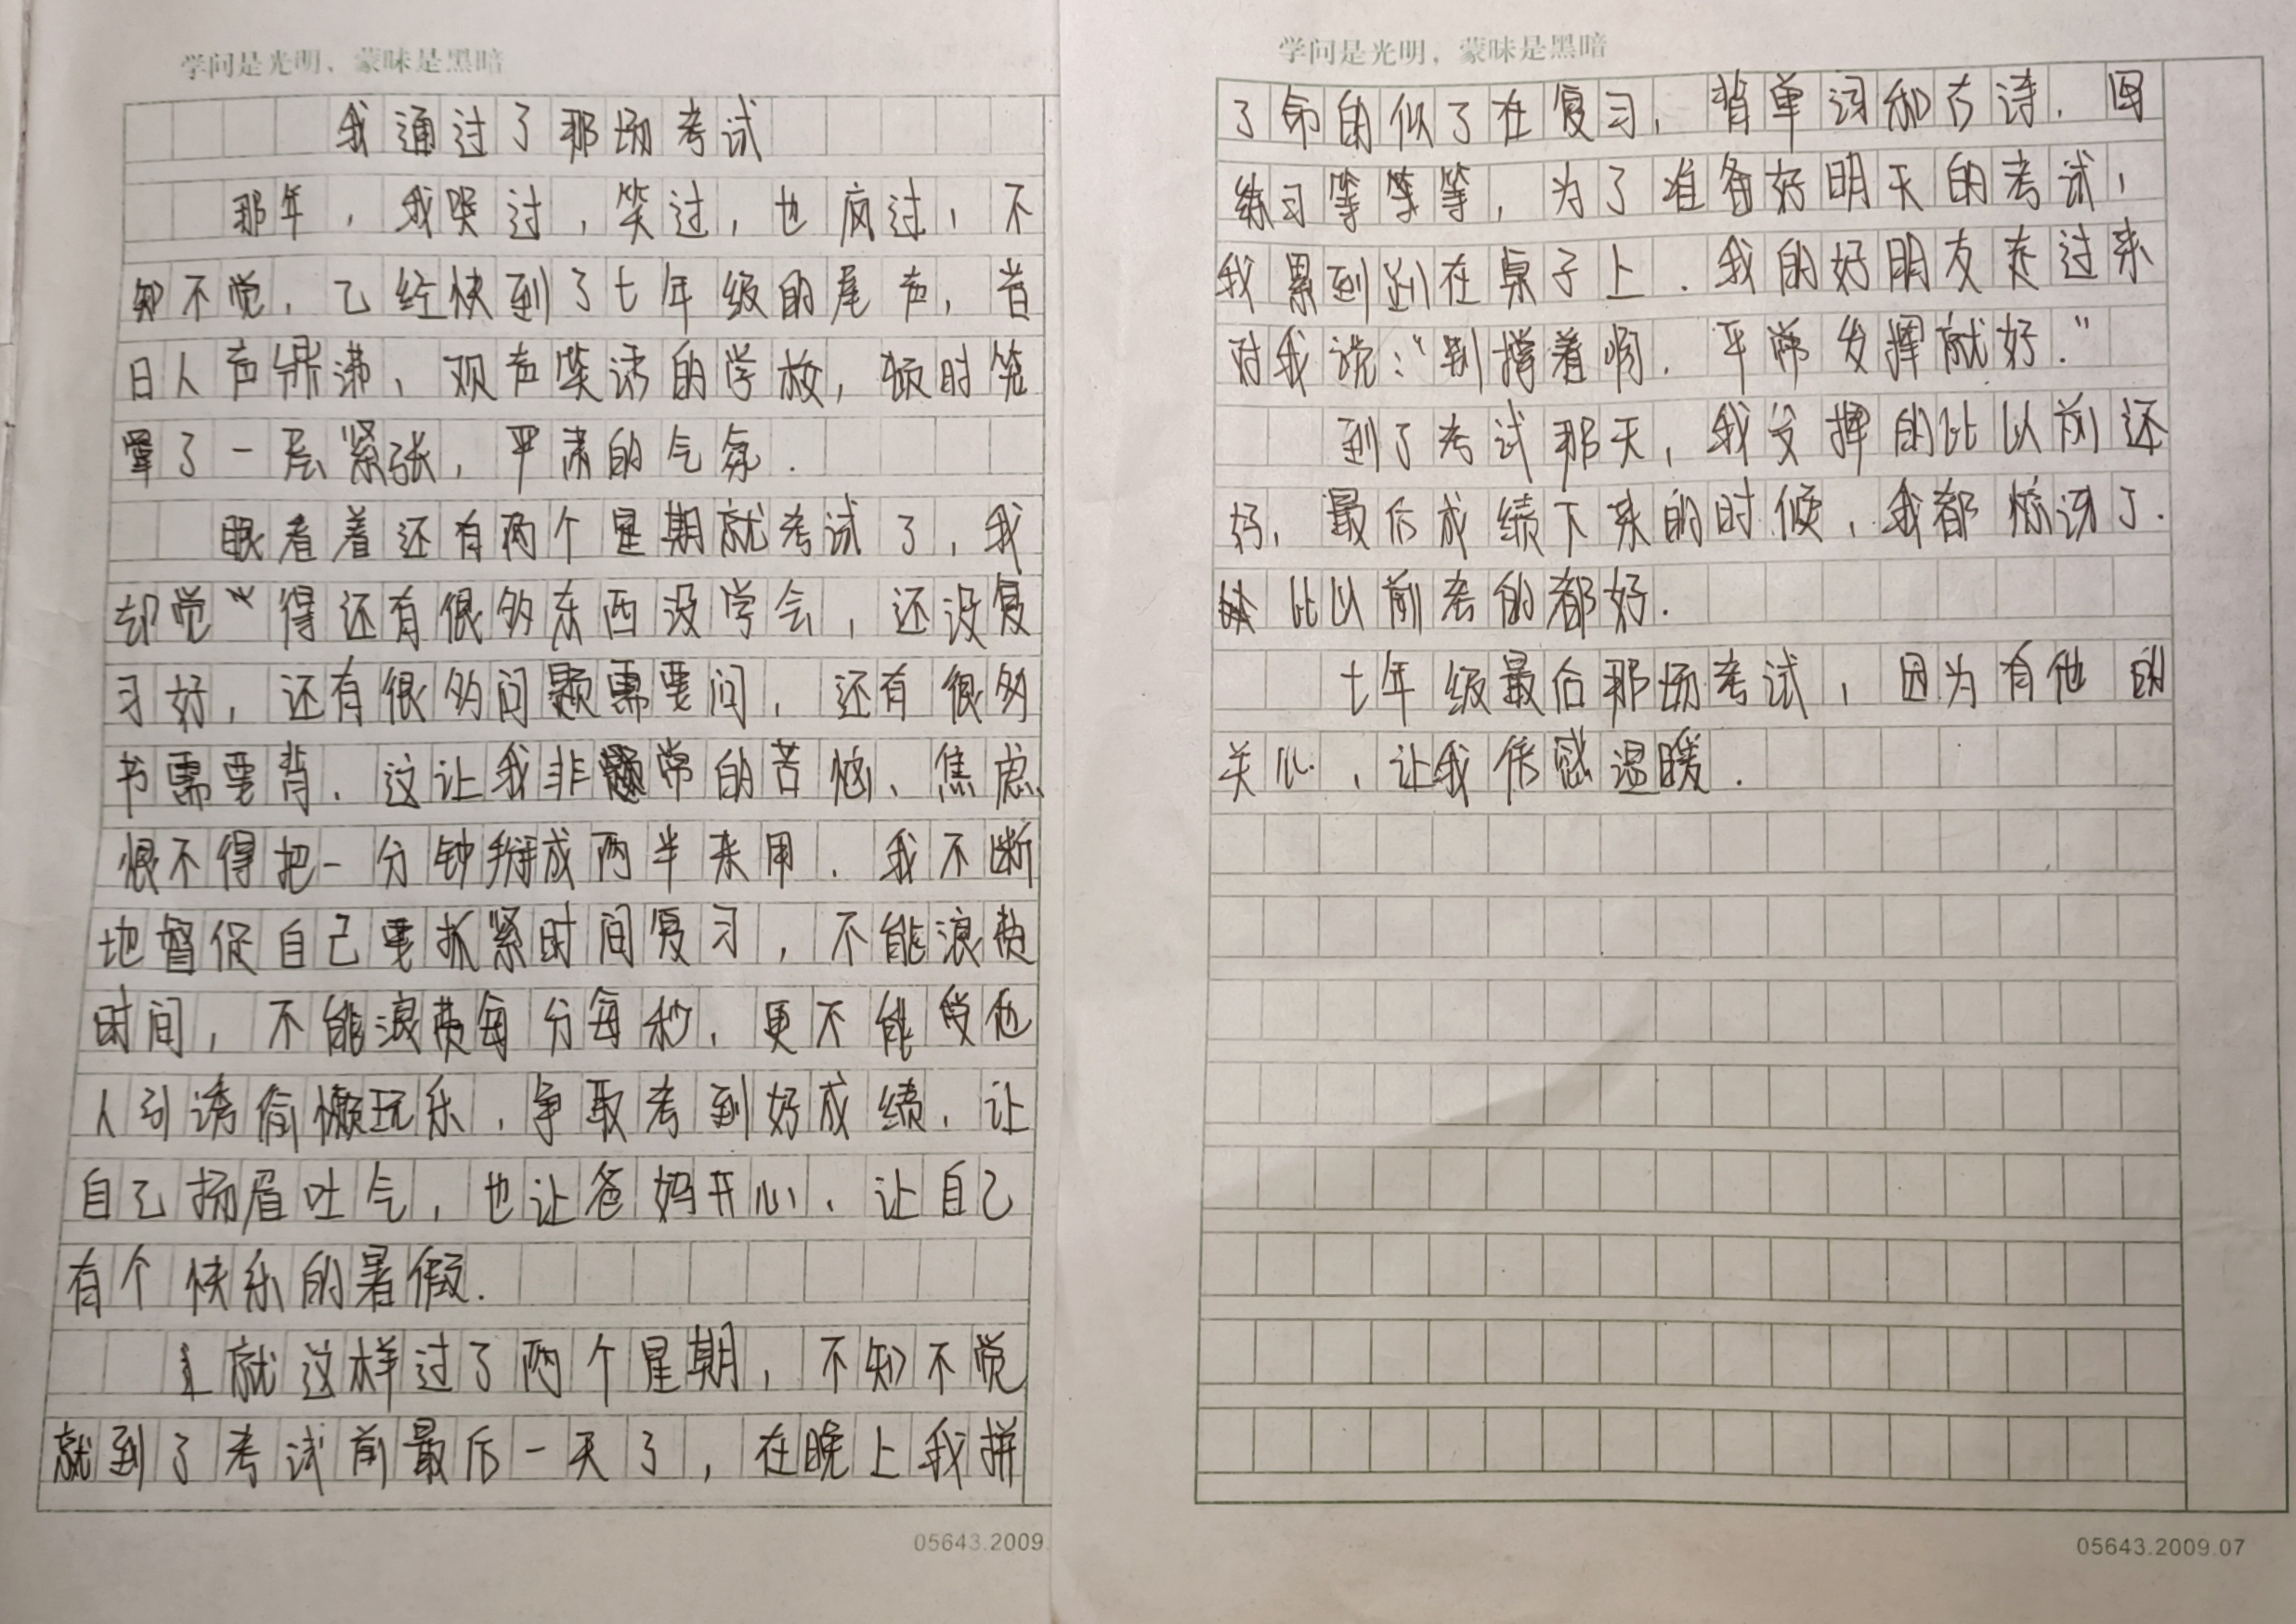 学问是光明，蒙昧是黑暗
我通过了那场考试
那年，我哭过，笑过，也疯过，不
知不觉，已经快到了七年级的尾声，昔
日人声鼎沸、观声笑语的学校，顿时笼
罩了一层紧张，严肃的气氛．
眼看着还有两个星期就考试了，我
却觉得还有很多东西没学会，还没复
习好，还有很多问题需要问，还有很多
书需要背．这让我非常的苦恼、焦虑
恨不得把一分钟掰成两半来用．我不断
地督促自己要抓紧时间复习，不能浪费
时间，不能浪费每分每秒．更不能受他
人引诱偷懒玩乐．争取考到好成绩．让
自己扬眉吐气，也让爸妈开心、让自己
有个快乐的暑假．
就这样过了两个星期，不知不觉
就到了考试前最后一天了，在晚上我拼
05643.2009.
学问是光明，蒙昧是黑暗
了命的似了在复习，背单词和古诗．
练习等等等，为了准备好明天的考试，
我累到趴在桌子上．我的好朋友走过来
对我说：“别撑着哟．平常发挥就好．”
到了考试那天，我发挥的比以前还
好，最后成绩下来的时候，我都惊讶了．
比以前考的都好．
七年级最后那场考试，因为有他的
关心，让我倍感温暖．
05643.2009.07